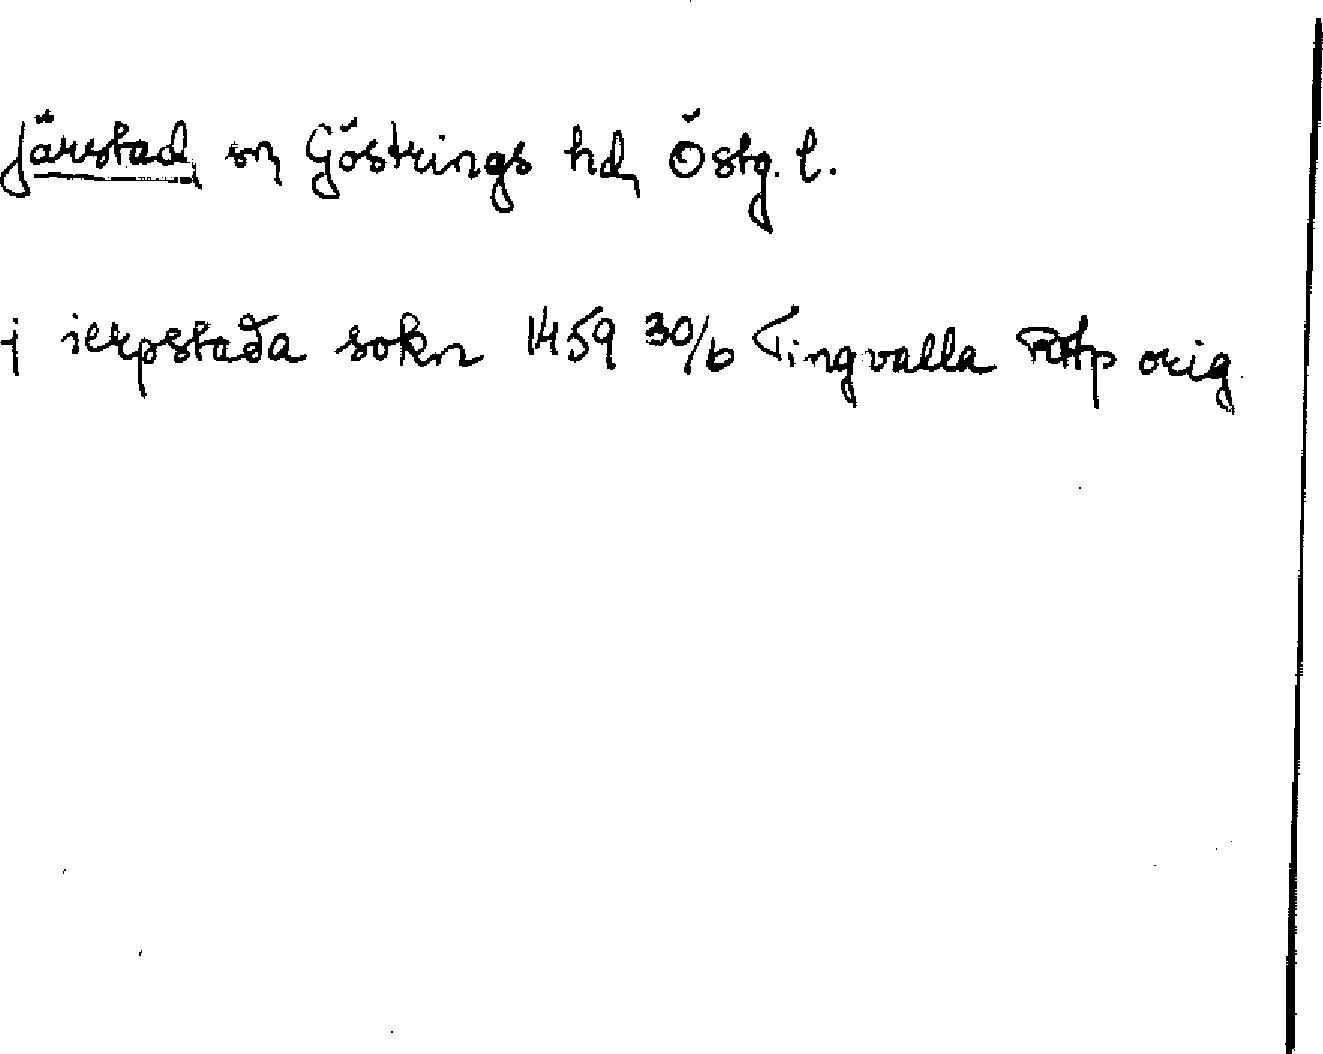 Järstad sn Göstrings hd Östg. l.
j ierpstaða sokn 1459 30/6 Tingvalla RAp orig